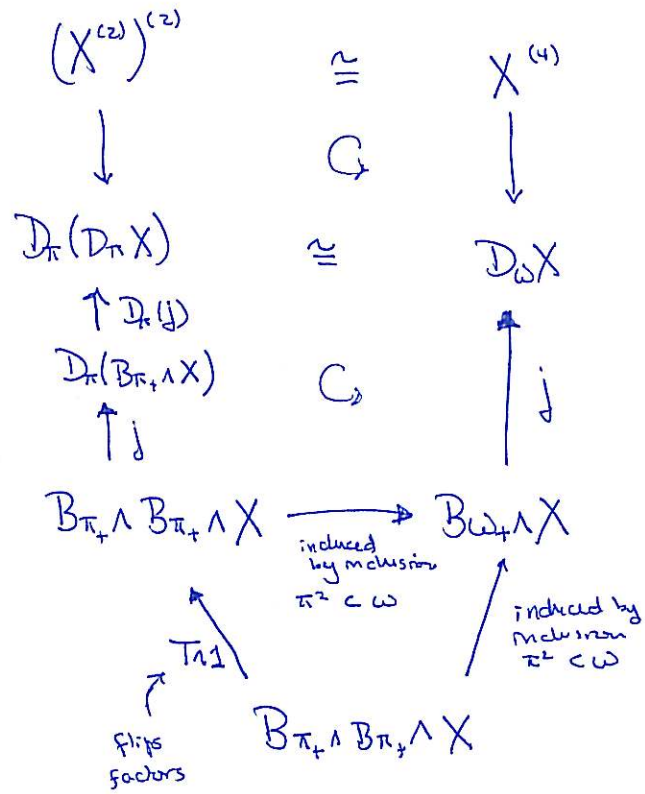 (X^(2))^(2) ≅ X^(4)
D_π(D_π X) ≅ D_ω X
↑ D_π(j)
D_π(B_π+ ∧ X)
↑ j
j
B_π+ ∧ B_π+ ∧ X → B_ω+ ∧ X
induced
by inclusion
π² ⊂ ω
T∧1
induced by
inclusion
π² ⊂ ω
flips
factors
B_π+ ∧ B_π+ ∧ X